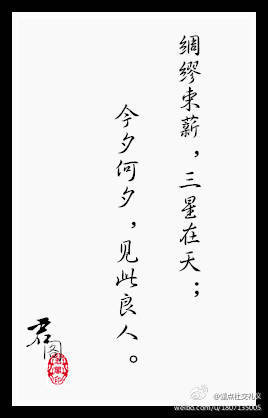 绸缪束薪，三星在天；
今夕何夕，见此良人。
君
weibo.com/u/1807135005